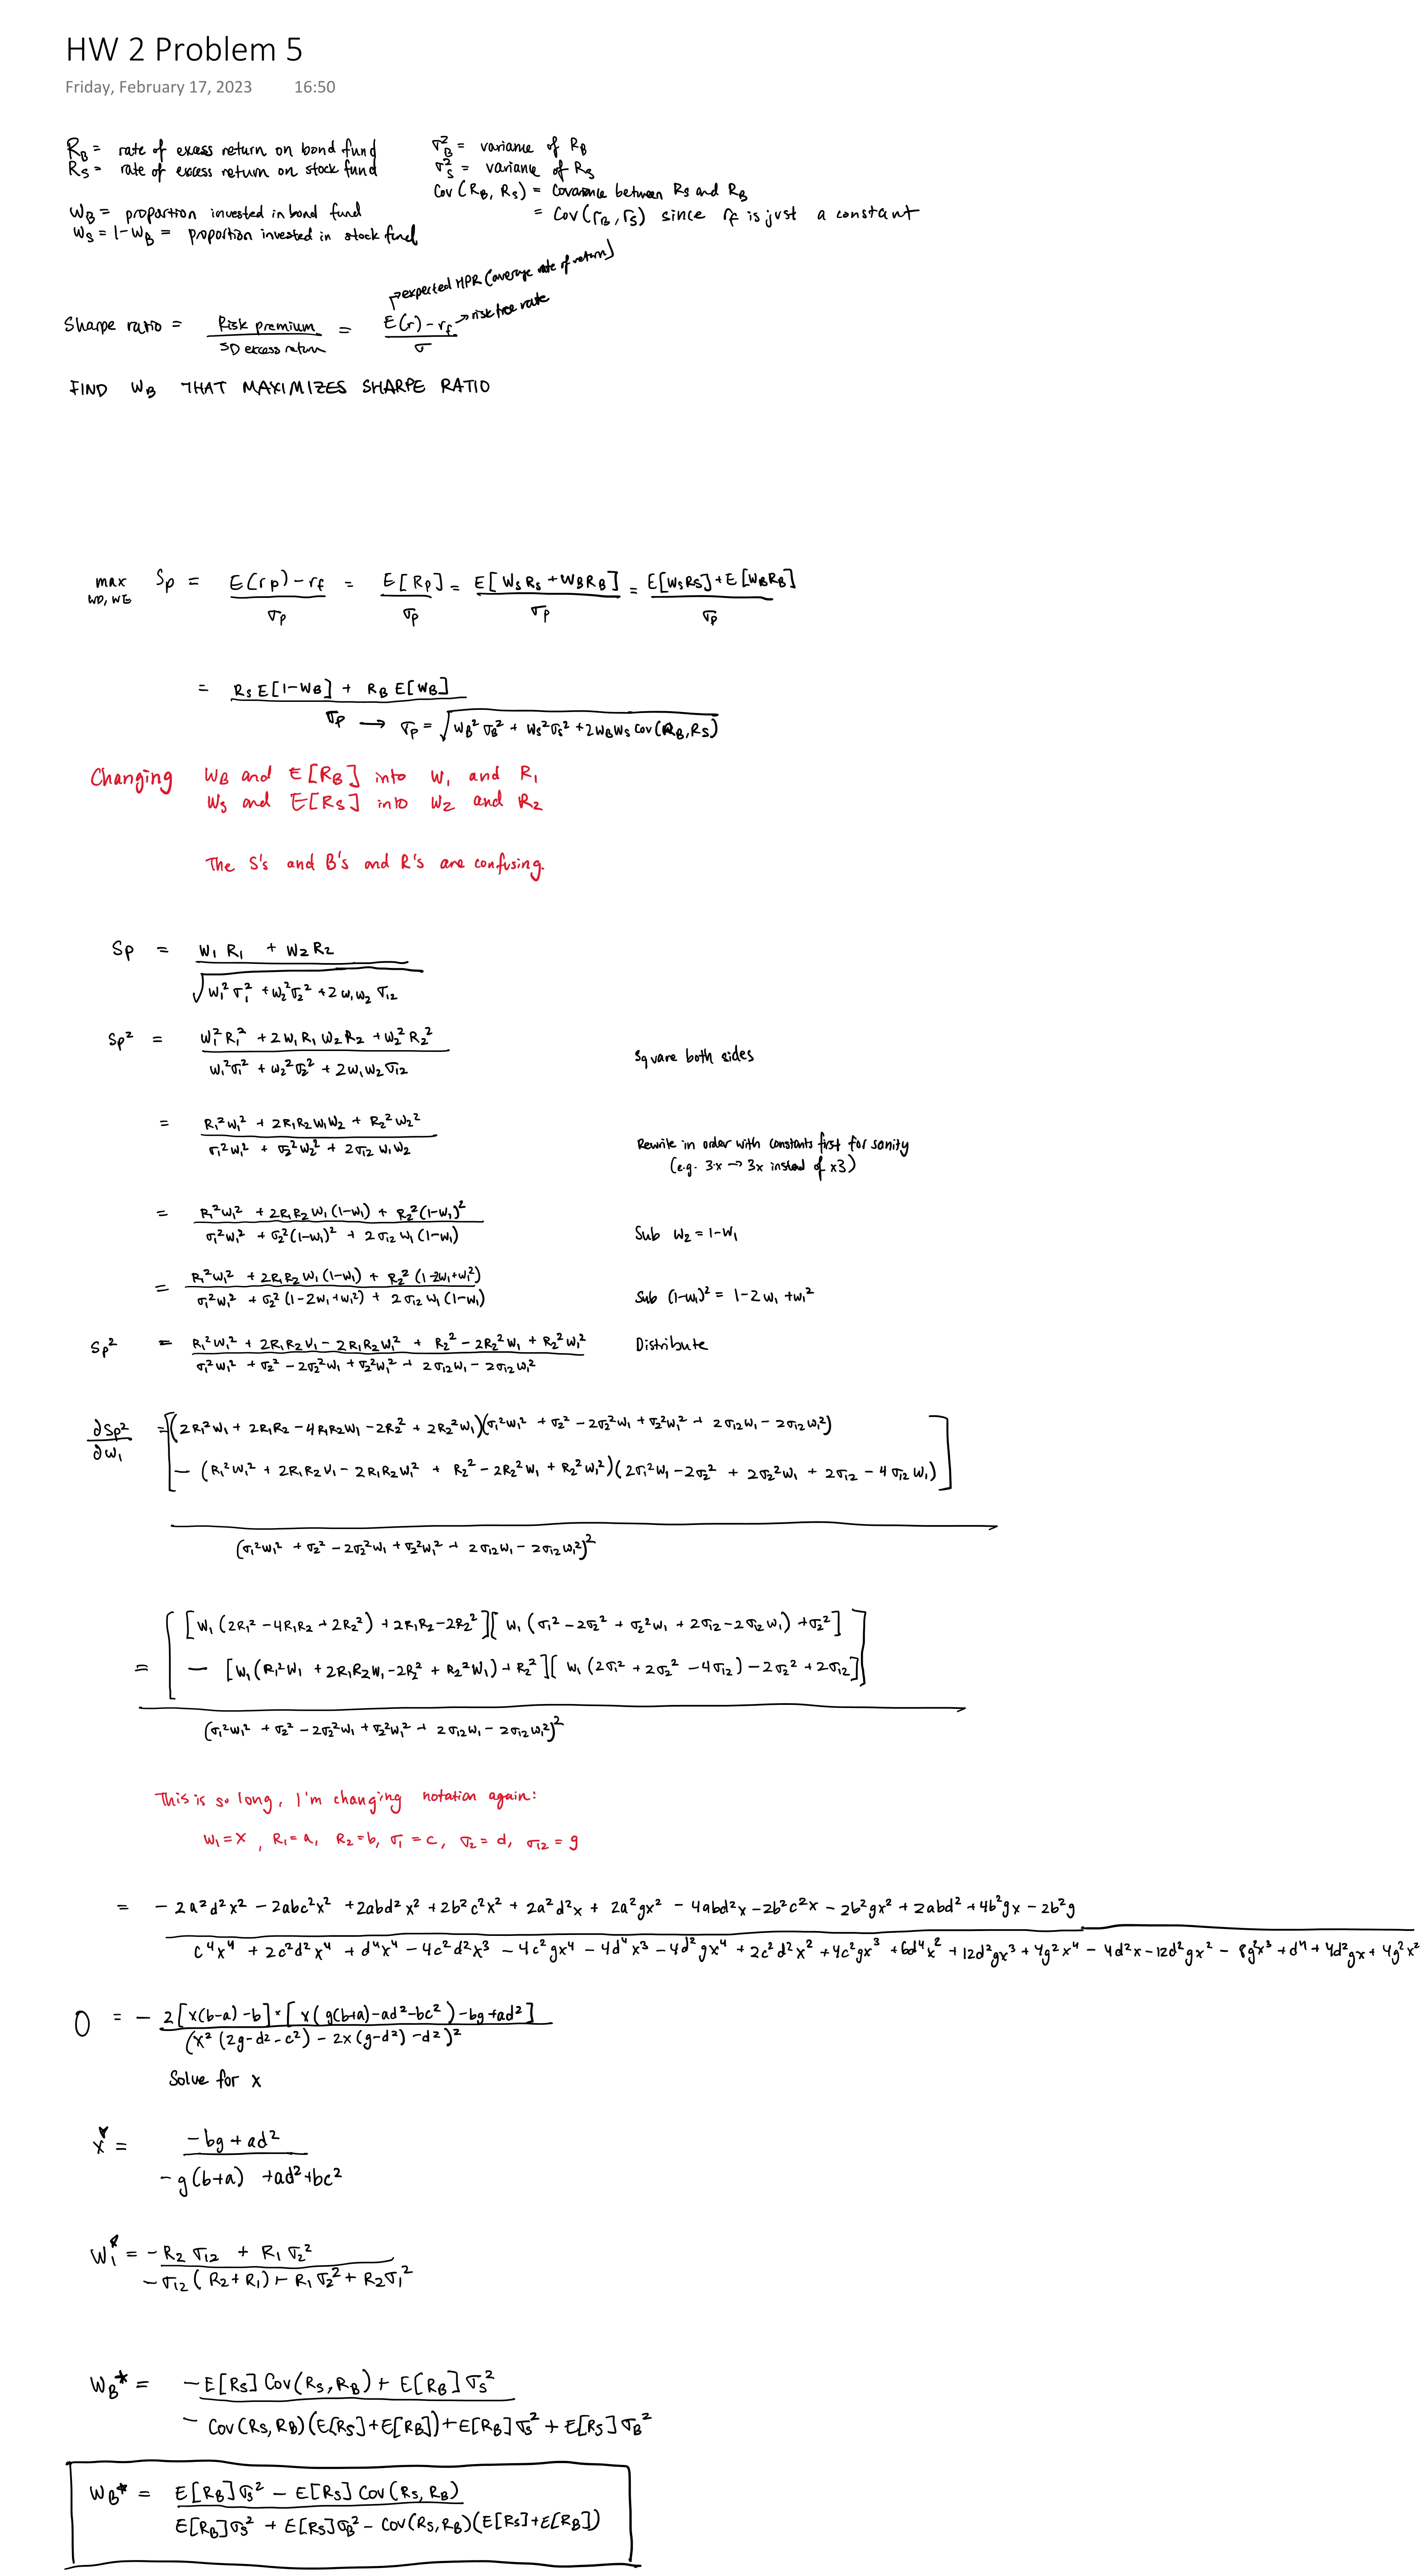 HW 2 Problem 5
Friday, February 17, 2023 16:50
R_B = rate of excess return on bond fund
R_S = rate of excess return on stock fund
σ_B² = variance of R_B
σ_S² = variance of R_S
Cov(R_B, R_S) = Covariance between R_S and R_B
= Cov(r_B, r_S) since r_f is just a constant
W_B = proportion invested in bond fund
W_S = 1-W_B = proportion invested in stock fund
→ expected HPR (average rate of return)
Sharpe ratio = Risk premium / SD excess return = E(r) - r_f / σ → risk free rate
FIND W_B THAT MAXIMIZES SHARPE RATIO
max W_D, W_E S_P = E(r_P) - r_f / σ_P = E[R_P] / σ_P = E[W_S R_S + W_B R_B] / σ_P = E[W_S R_S] + E[W_B R_B] / σ_P
= R_S E[1-W_B] + R_B E[W_B] / σ_P → σ_P = √(W_B² σ_B² + W_S² σ_S² + 2 W_B W_S Cov(R_B, R_S))
Changing W_B and E[R_B] into W_1 and R_1
W_S and E[R_S] into W_2 and R_2
The S's and B's and R's are confusing.
S_P = W_1 R_1 + W_2 R_2 / √(W_1² σ_1² + W_2² σ_2² + 2 W_1 W_2 σ_12)
S_P² = W_1² R_1² + 2 W_1 R_1 W_2 R_2 + W_2² R_2² / W_1² σ_1² + W_2² σ_2² + 2 W_1 W_2 σ_12 Square both sides
= R_1² W_1² + 2 R_1 R_2 W_1 W_2 + R_2² W_2² / σ_1² W_1² + σ_2² W_2² + 2 σ_12 W_1 W_2 Rewrite in order with constants first for sanity
(e.g. 3·x → 3x instead of x3)
= R_1² W_1² + 2 R_1 R_2 W_1 (1-W_1) + R_2² (1-W_1)² / σ_1² W_1² + σ_2² (1-W_1)² + 2 σ_12 W_1 (1-W_1) Sub W_2 = 1-W_1
= R_1² W_1² + 2 R_1 R_2 W_1 (1-W_1) + R_2² (1-2W_1+W_1²) / σ_1² W_1² + σ_2² (1-2W_1+W_1²) + 2 σ_12 W_1 (1-W_1) Sub (1-W_1)² = 1-2W_1+W_1²
S_P² = R_1² W_1² + 2 R_1 R_2 W_1 - 2 R_1 R_2 W_1² + R_2² - 2 R_2² W_1 + R_2² W_1² / σ_1² W_1² + σ_2² - 2 σ_2² W_1 + σ_2² W_1² + 2 σ_12 W_1 - 2 σ_12 W_1² Distribute
∂S_P² / ∂W_1 = [(2 R_1² W_1 + 2 R_1 R_2 - 4 R_1 R_2 W_1 - 2 R_2² + 2 R_2² W_1)(σ_1² W_1² + σ_2² - 2 σ_2² W_1 + σ_2² W_1² + 2 σ_12 W_1 - 2 σ_12 W_1²)
- (R_1² W_1² + 2 R_1 R_2 W_1 - 2 R_1 R_2 W_1² + R_2² - 2 R_2² W_1 + R_2² W_1²)(2 σ_1² W_1 - 2 σ_2² + 2 σ_2² W_1 + 2 σ_12 - 4 σ_12 W_1)]
(σ_1² W_1² + σ_2² - 2 σ_2² W_1 + σ_2² W_1² + 2 σ_12 W_1 - 2 σ_12 W_1²)²
= [[W_1 (2 R_1² - 4 R_1 R_2 + 2 R_2²) + 2 R_1 R_2 - 2 R_2²][W_1 (σ_1² - 2 σ_2² + σ_2² W_1 + 2 σ_12 - 2 σ_12 W_1) + σ_2²]
- [W_1 (R_1² W_1 + 2 R_1 R_2 W_1 - 2 R_2² + R_2² W_1) + R_2²][W_1 (2 σ_1² + 2 σ_2² - 4 σ_12) - 2 σ_2² + 2 σ_12]]
(σ_1² W_1² + σ_2² - 2 σ_2² W_1 + σ_2² W_1² + 2 σ_12 W_1 - 2 σ_12 W_1²)²
This is so long, I'm changing notation again:
W_1 = x, R_1 = a, R_2 = b, σ_1 = c, σ_2 = d, σ_12 = g
= - 2a²d²x² - 2abc²x² + 2abd²x² + 2b²c²x² + 2a²d²x + 2a²gx² - 4abd²x - 2b²c²x - 2b²gx² + 2abd² + 4b²gx - 2b²g
c⁴x⁴ + 2c²d²x⁴ + d⁴x⁴ - 4c²d²x³ - 4c²gx⁴ - 4d⁴x³ - 4d²gx⁴ + 2c²d²x² + 4c²gx³ + 6d⁴x² + 12d²gx³ + 4g²x⁴ - 4d²x - 12d²gx² - 8g²x³ + d⁴ + 4d²gx + 4g²x²
0 = - 2[x(b-a)-b]·[x(g(b+a)-ad²-bc²)-bg+ad²] / (x²(2g-d²-c²) - 2x(g-d²) - d²)²
Solve for x
x* = -bg + ad² / -g(b+a) + ad² + bc²
W_1* = -R_2 σ_12 + R_1 σ_2² / -σ_12 (R_2 + R_1) + R_1 σ_2² + R_2 σ_1²
W_B* = -E[R_S] Cov(R_S, R_B) + E[R_B] σ_S² / - Cov(R_S, R_B)(E[R_S] + E[R_B]) + E[R_B] σ_S² + E[R_S] σ_B²
W_B* = E[R_B] σ_S² - E[R_S] Cov(R_S, R_B) / E[R_B] σ_S² + E[R_S] σ_B² - Cov(R_S, R_B)(E[R_S] + E[R_B])